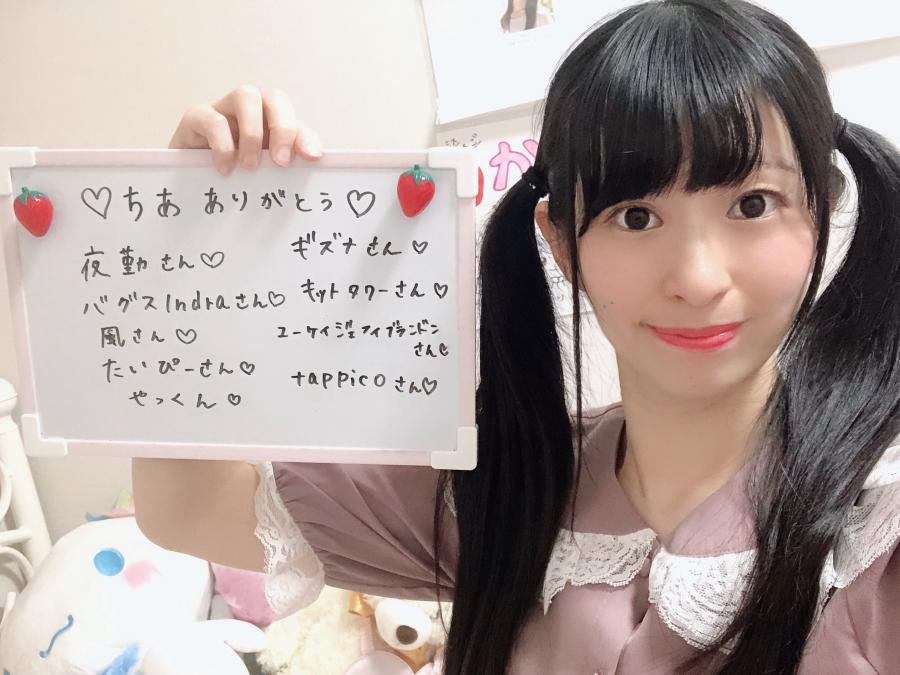 か
♡ちあ ありがとう♡
夜勤さん♡
バグスIndraさん♡
風さん♡
たいぴーさん♡
やっくん♡
ギズナさん♡
キットタワーさん♡
ユーケイジェアイブランドン
さん♡
tappicoさん♡